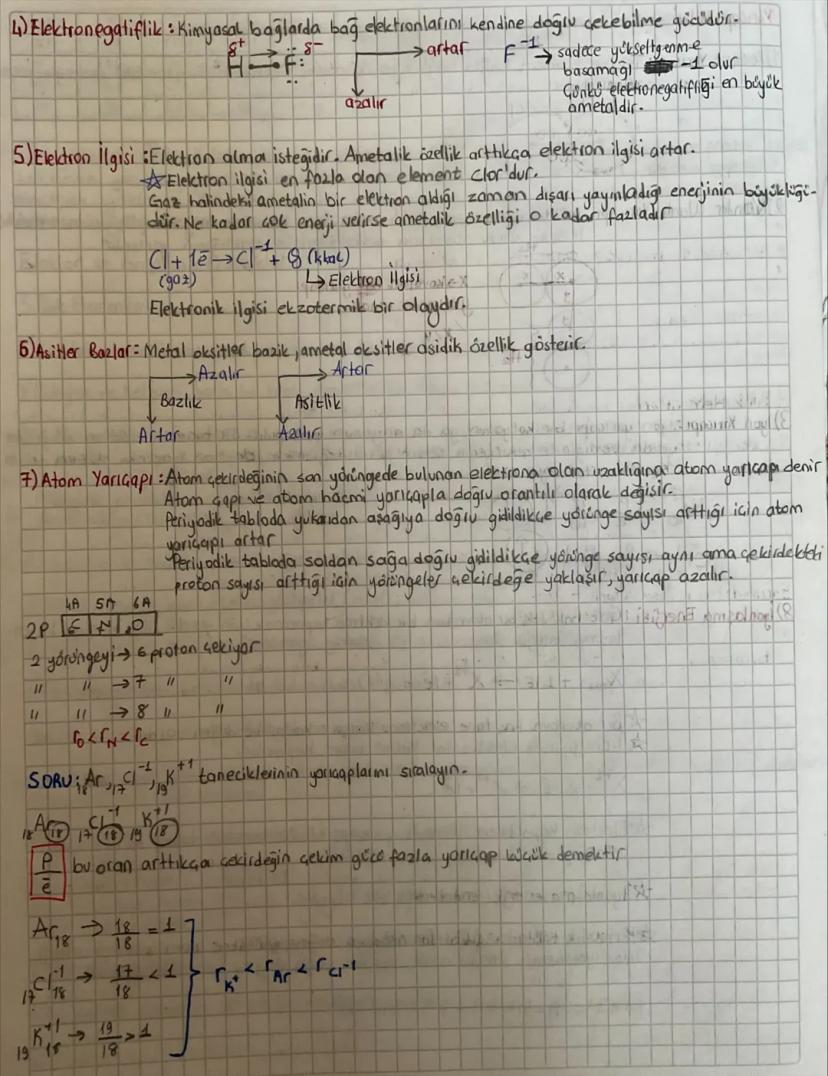 4) Elektronegatiflik: Kimyasal bağlarda bağ elektronlarını kendine doğru çekebilme gücüdür.
δ+ δ-
H F
artar
azalır
F⁻¹ → sadece yükseltgenme
basamağı -1 olur
Çünkü elektronegatifliği en büyük
ametaldır.
5) Elektron İlgisi: Elektron alma isteğidir. Ametalik özellik arttıkça elektron ilgisi artar.
☆ Elektron ilgisi en fazla olan element Clor'dur.
Gaz halindeki ametalin bir elektron aldığı zaman dışarı yayınladığı enerjinin büyüklüğü-
dür. Ne kadar çok enerji verirse ametalik özelliği o kadar fazladır
Cl + 1ē → Cl⁻¹ + 8 (kkal)
(gaz) ↳ Elektron ilgisi
Elektronik ilgisi ekzotermik bir olaydır.
6) Asitler Bazlar: Metal oksitler bazik, ametal oksitler asidik özellik gösterir.
Azalır Artar
Bazlık Asitlik
Artar Azalır
7) Atom Yarıçapı: Atom çekirdeğinin son yörüngede bulunan elektrona olan uzaklığına atom yarıçapı denir
Atom çapı ve atom hacmi yarıçapla doğru orantılı olarak değişir.
Periyodik tabloda yukarıdan aşağıya doğru gidildikçe yörünge sayısı arttığı için atom
yarıçapı artar
Periyodik tabloda soldan sağa doğru gidildikçe yörünge sayısı aynı ama çekirdekteki
proton sayısı arttığı için yörüngeler çekirdeğe yaklaşır, yarıçap azalır.
4A 5A 6A
2P C N O
2 yörüngeyi → 6 proton çekiyor
" " → 7 " "
" " → 8 " "
r_O < r_N < r_C
SORU: ₁₈Ar, ₁₇Cl⁻¹, ₁₉K⁺¹ taneciklerinin yarıçaplarını sıralayın.
₁₈Ar₁₈ ₁₇Cl⁻¹₁₈ ₁₉K⁺¹₁₈
P/ē bu oran arttıkça çekirdeğin çekim gücü fazla yarıçap küçük demektir
Ar₁₈ → 18/18 = 1
₁₇Cl⁻¹₁₈ → 17/18 < 1 r_K⁺ < r_Ar < r_Cl⁻¹
₁₉K⁺¹₁₈ → 19/18 > 1